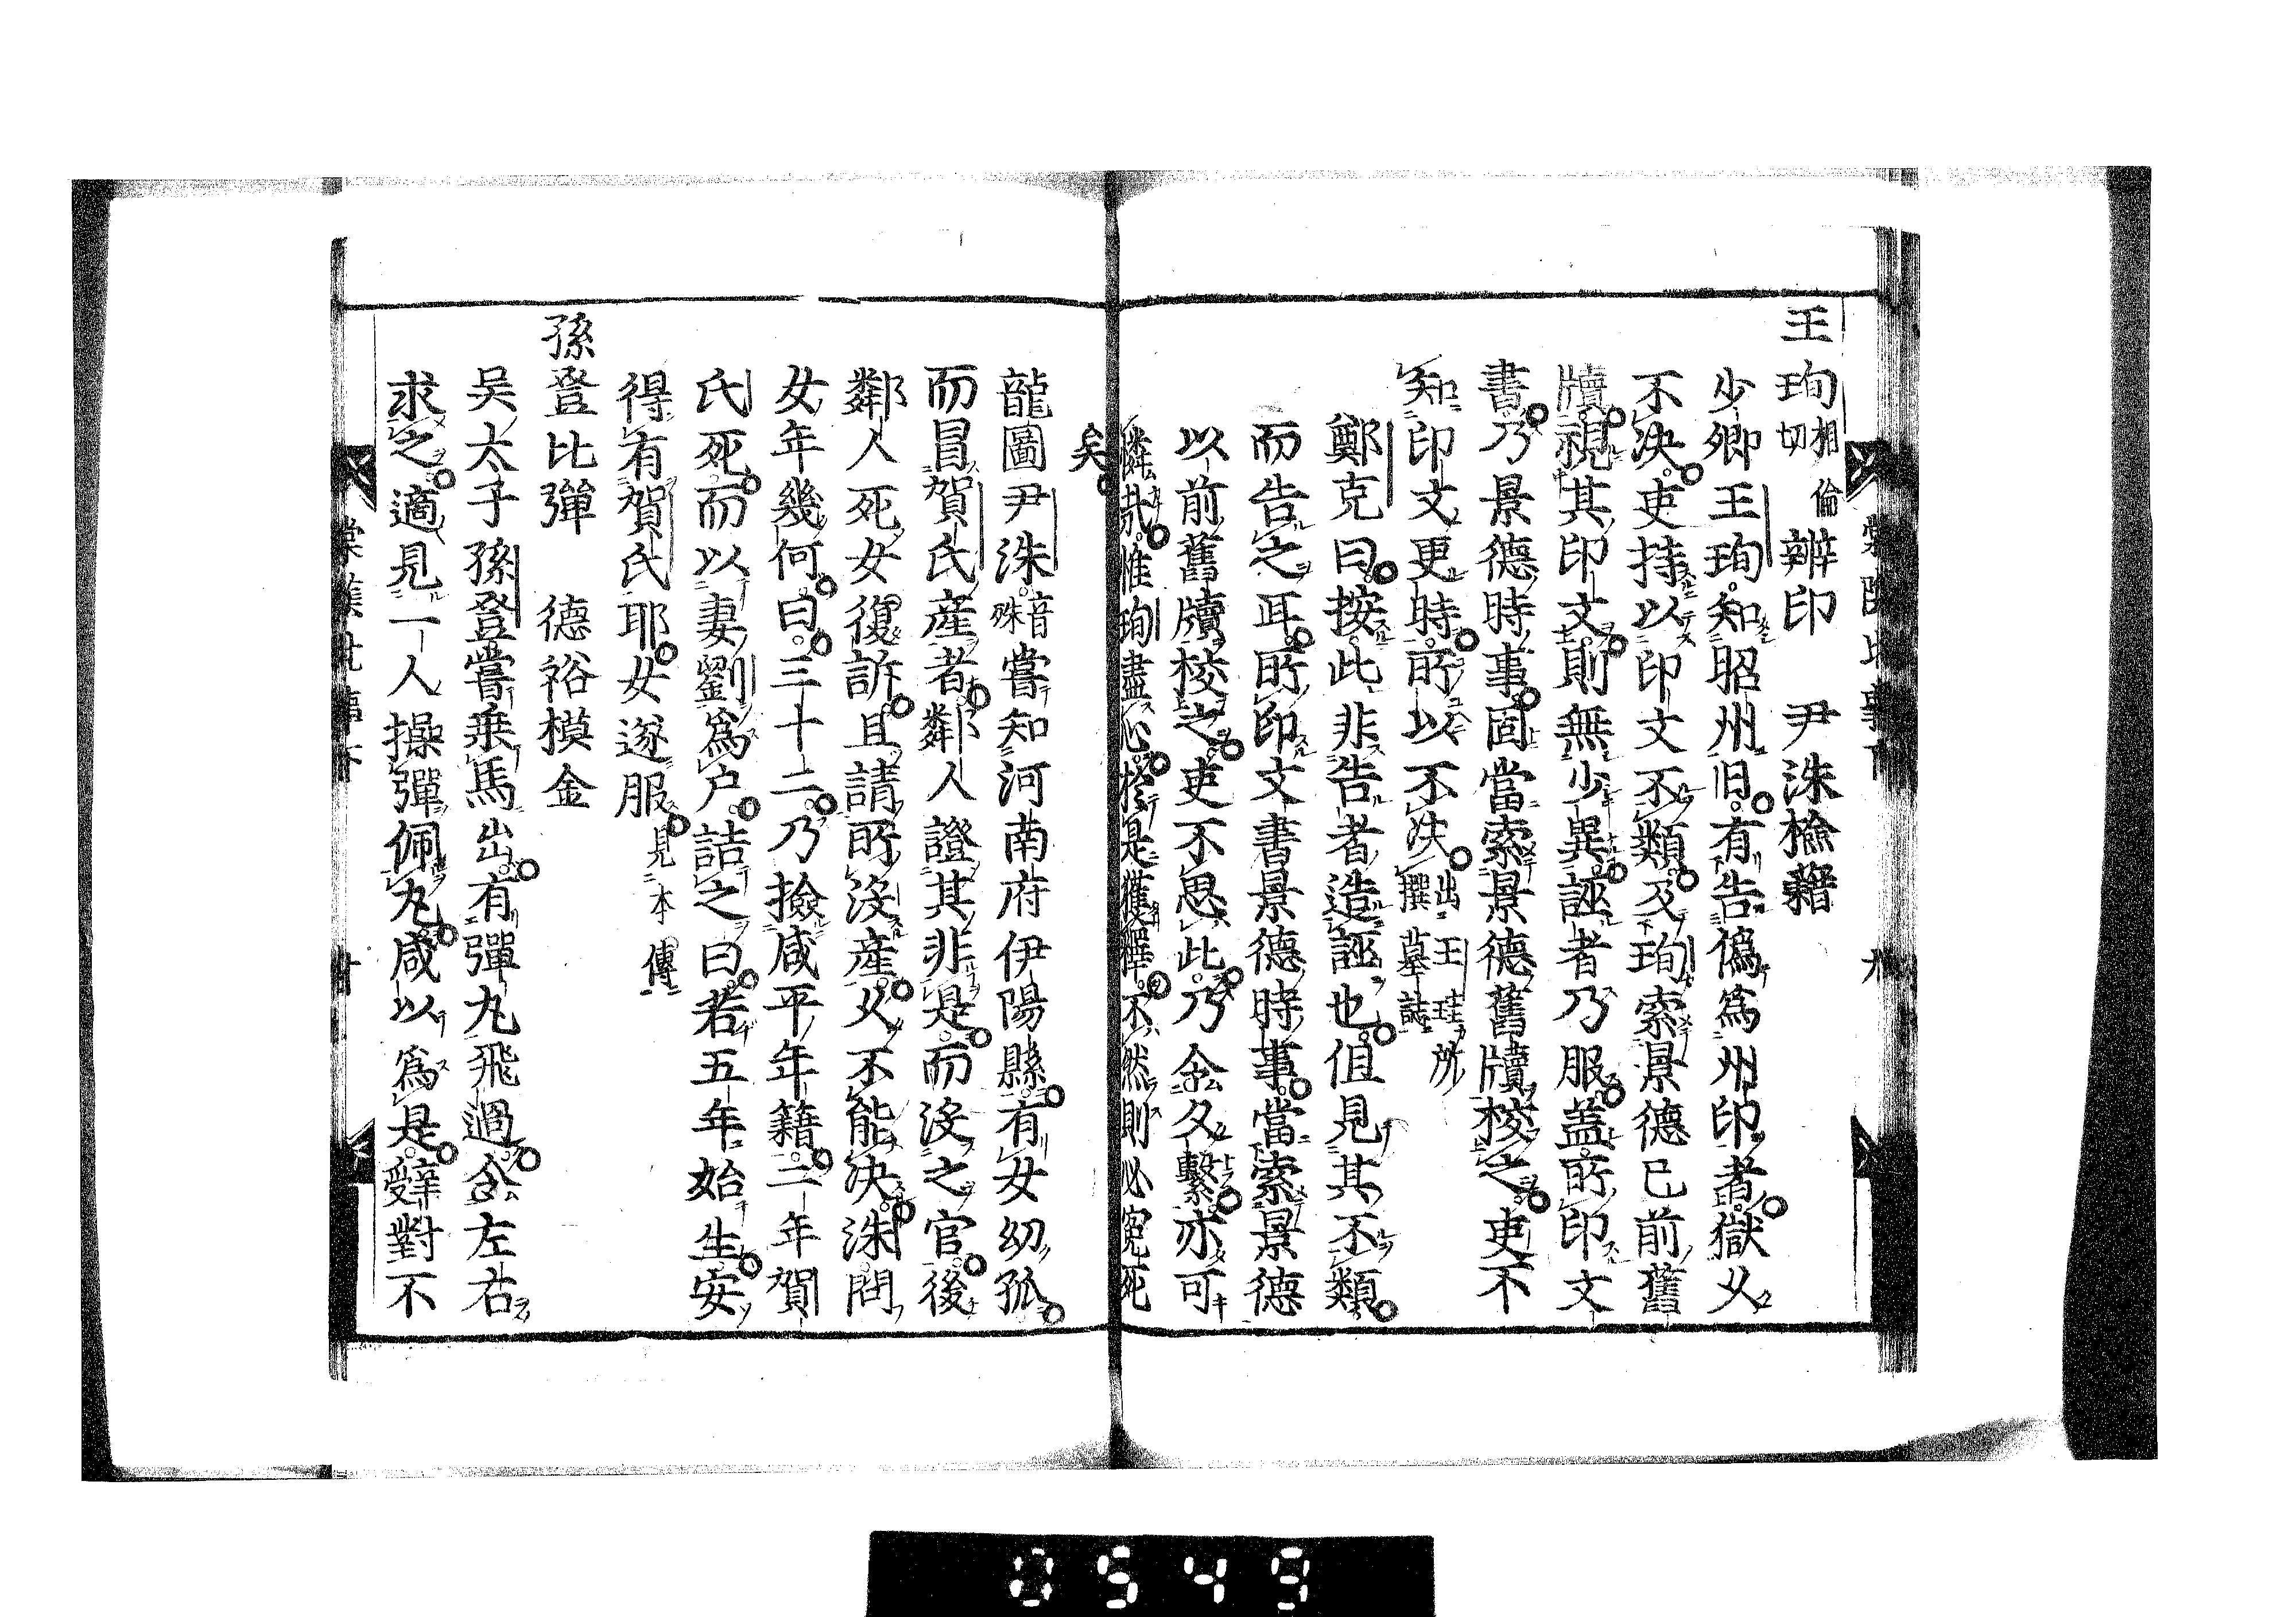 王珣相倫切辨印　尹洙檢籍
少卿王珣知昭州旧有告偽為州印者獄乆
不决吏持以印文不類及珣索景德已前舊
牘視其印文則無少異誣者乃服盖所印文
書乃景德時事固當索景德舊牘校之吏不
知印文更時所以不决出王珪所撰墓誌
鄭克曰按此非告者造誣也但見其不類
而告之耳所印文書景德時事當索景德
以前舊牘校之吏不思此乃令久繫亦可
憐哉惟珣盡心於是獲釋不然則必寃死
矣
龍圖尹洙音殊嘗知河南府伊陽縣有女幼孤
而冒賀氏産者鄰人證其非是而没之官後
鄰人死女復訴且請所没産乆不能决洙問
女年幾何曰三十二乃撿咸平年籍二年賀
氏死而以妻劉為户詰之曰若五年始生安
得有賀氏耶女遂服見本傳
孫登比彈　德裕模金
吴太子孫登嘗乗馬出有彈丸飛過令左右
求之適見一人操彈佩丸咸以為是辭對不
0549